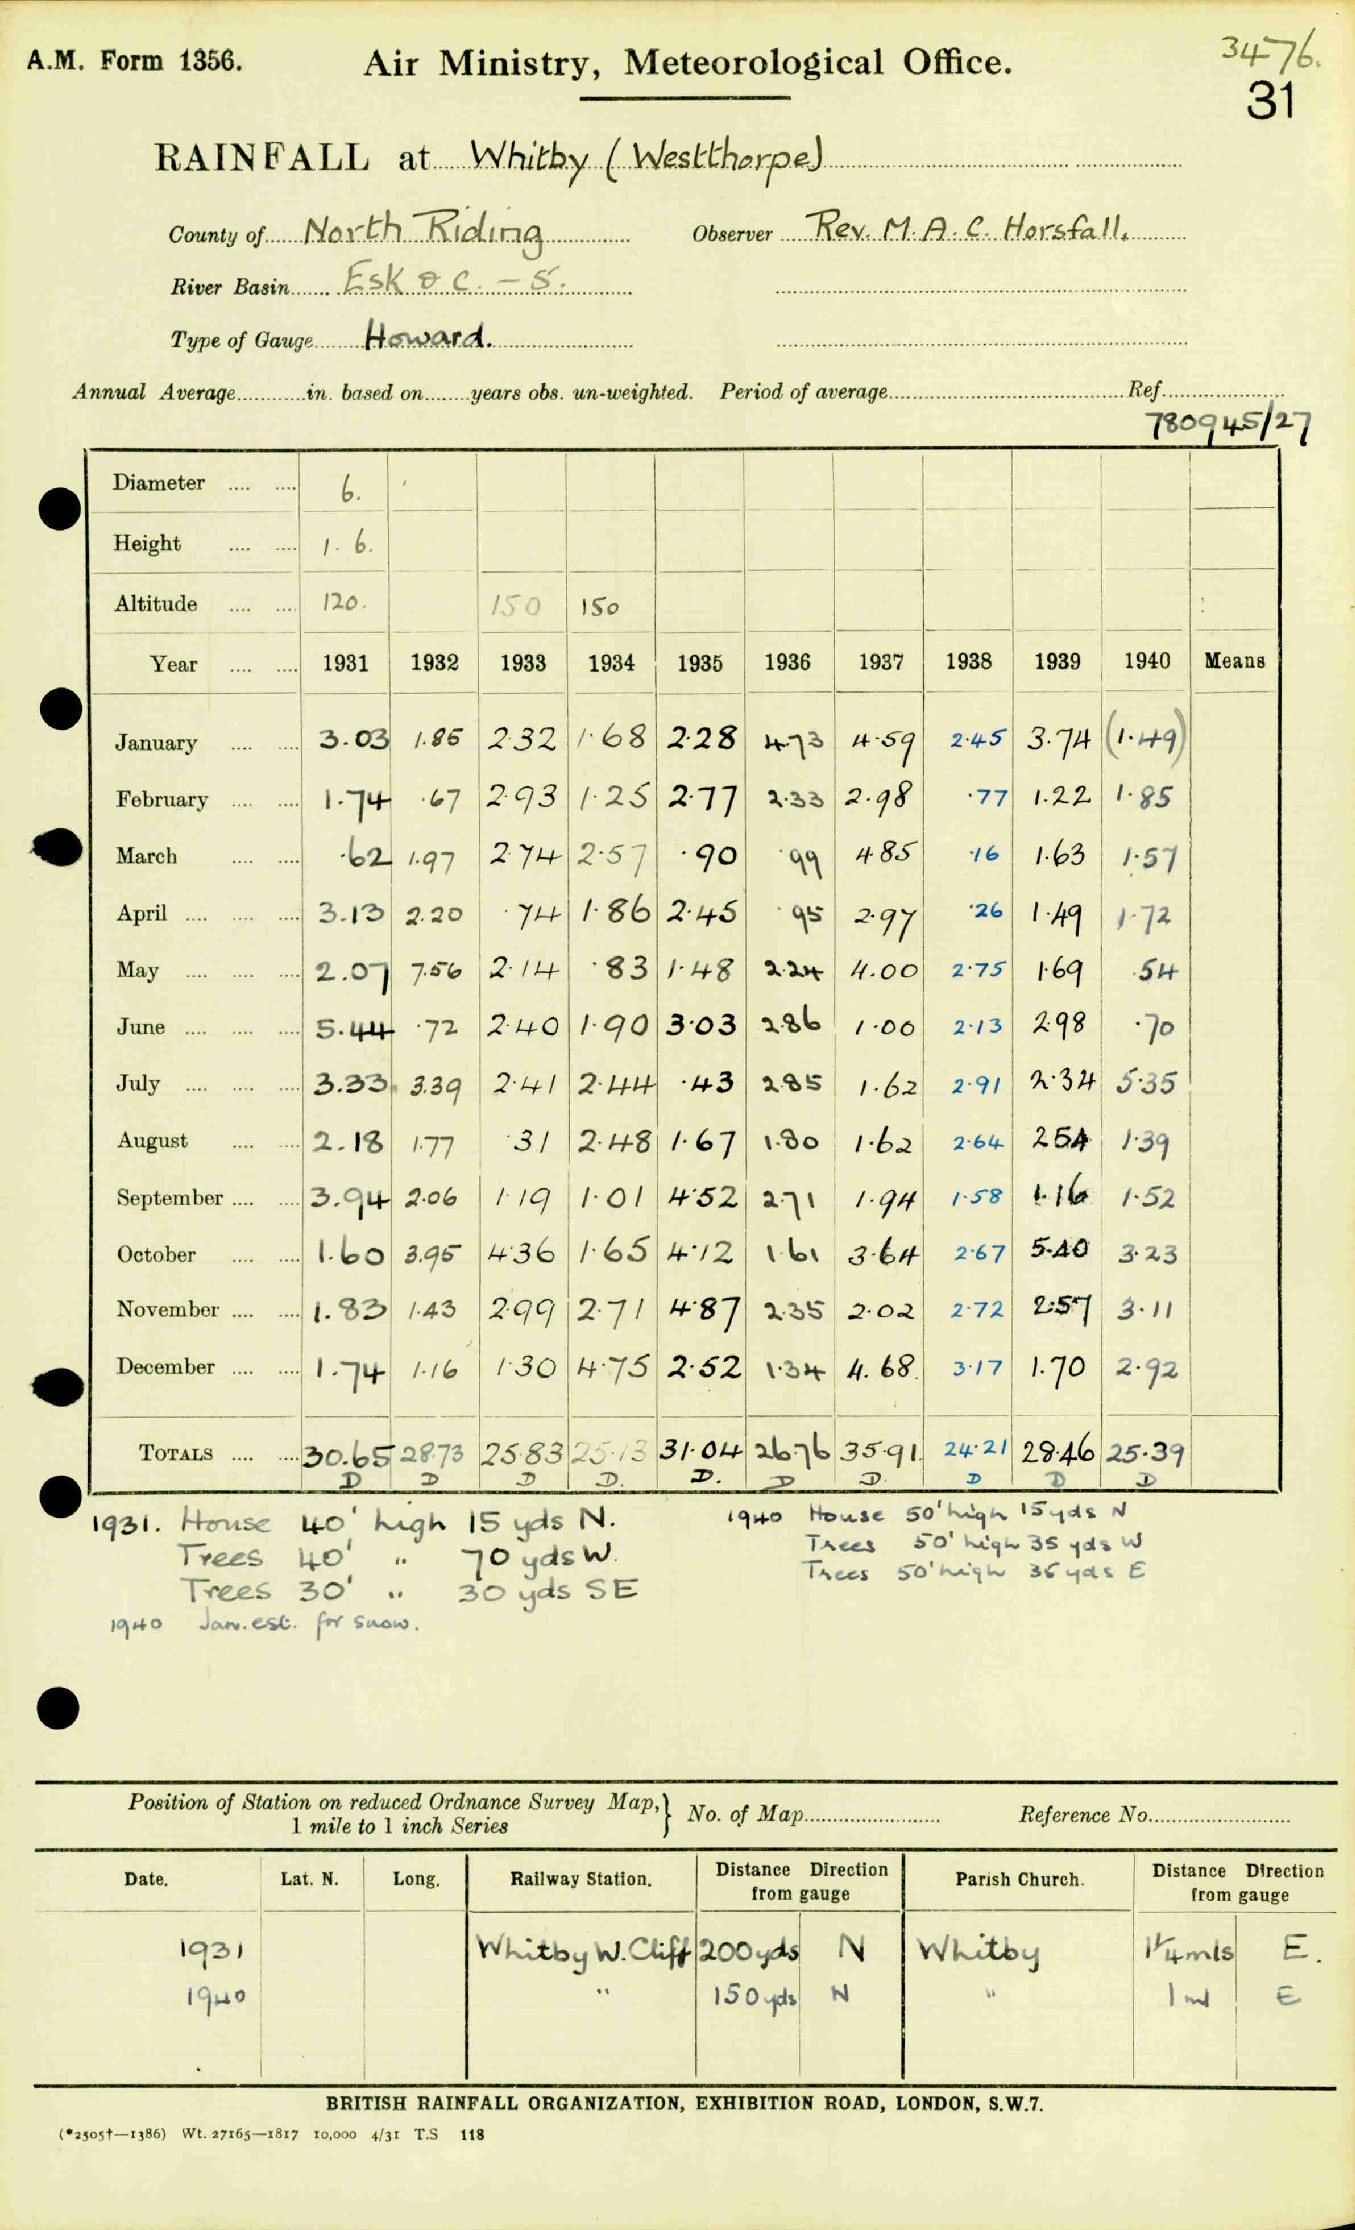 A.M. Form 1356.
Air Ministry, Meteorological Office.
3476.
31
RAINFALL at Whitby (Westthorpe)
County of North Riding Observer Rev. M. A. C. Horsfall.
River Basin Esk & C. - 5.
Type of Gauge Howard.
Annual Average in. based on years obs. un-weighted. Period of average Ref.
780945/27
Diameter 6.
Height 1. 6.
Altitude 120. 150 150
Year 1931 1932 1933 1934 1935 1936 1937 1938 1939 1940 Means
January 3.03 1.85 2.32 1.68 2.28 4.73 4.59 2.45 3.74 (1.49)
February 1.74 .67 2.93 1.25 2.77 2.33 2.98 .77 1.22 1.85
March .62 1.97 2.74 2.57 .90 .99 4.85 .16 1.63 1.57
April 3.13 2.20 .74 1.86 2.45 .95 2.97 .26 1.49 1.72
May 2.07 7.56 2.14 .83 1.48 2.24 4.00 2.75 1.69 .54
June 5.44 .72 2.40 1.90 3.03 2.86 1.00 2.13 2.98 .70
July 3.33 3.39 2.41 2.44 .43 2.85 1.62 2.91 2.34 5.35
August 2.18 1.77 .31 2.48 1.67 1.80 1.62 2.64 2.54 1.39
September 3.94 2.06 1.19 1.01 4.52 2.71 1.94 1.58 1.16 1.52
October 1.60 3.95 4.36 1.65 4.12 1.61 3.64 2.67 5.40 3.23
November 1.83 1.43 2.99 2.71 4.87 2.35 2.02 2.72 2.57 3.11
December 1.74 1.16 1.30 4.75 2.52 1.34 4.68 3.17 1.70 2.92
TOTALS 30.65 28.73 25.83 25.13 31.04 26.76 35.91 24.21 28.46 25.39
D D D D. D. D D D D D
1931. House 40' high 15 yds N.
Trees 40' " 70 yds W.
Trees 30' " 30 yds SE
1940 Jan. est. for snow.
1940 House 50' high 15 yds N
Trees 50' high 35 yds W
Trees 50' high 35 yds E
Position of Station on reduced Ordnance Survey Map, } No. of Map Reference No.
1 mile to 1 inch Series
Date. Lat. N. Long. Railway Station. Distance Direction from gauge Parish Church. Distance Direction from gauge
1931 Whitby W. Cliff 200 yds N Whitby 1¼ mls E.
1940 " 150 yds N " 1 ml E
BRITISH RAINFALL ORGANIZATION, EXHIBITION ROAD, LONDON, S.W.7.
(*2505†—1386) Wt. 27165—1817 10,000 4/31 T.S 118